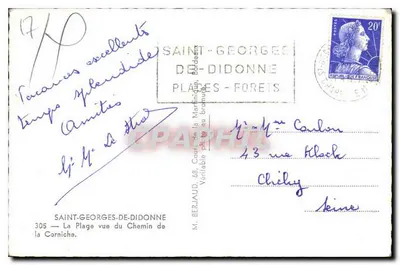 17
Vacances excellentes
temps splendide
Amitiés
Mr Me Le
SAINT-GEORGES-DE-DIDONNE
305 — La Plage vue du Chemin de
la Corniche.
M. BERJAUD, 68, Cours de la Martinique, Bordeaux
Véritable au bromure
SAINT-GEORGES
DE-DIDONNE
PLAGES - FORETS
20F
Mr - Mme Coulon
43 rue Klock
Clichy
Seine